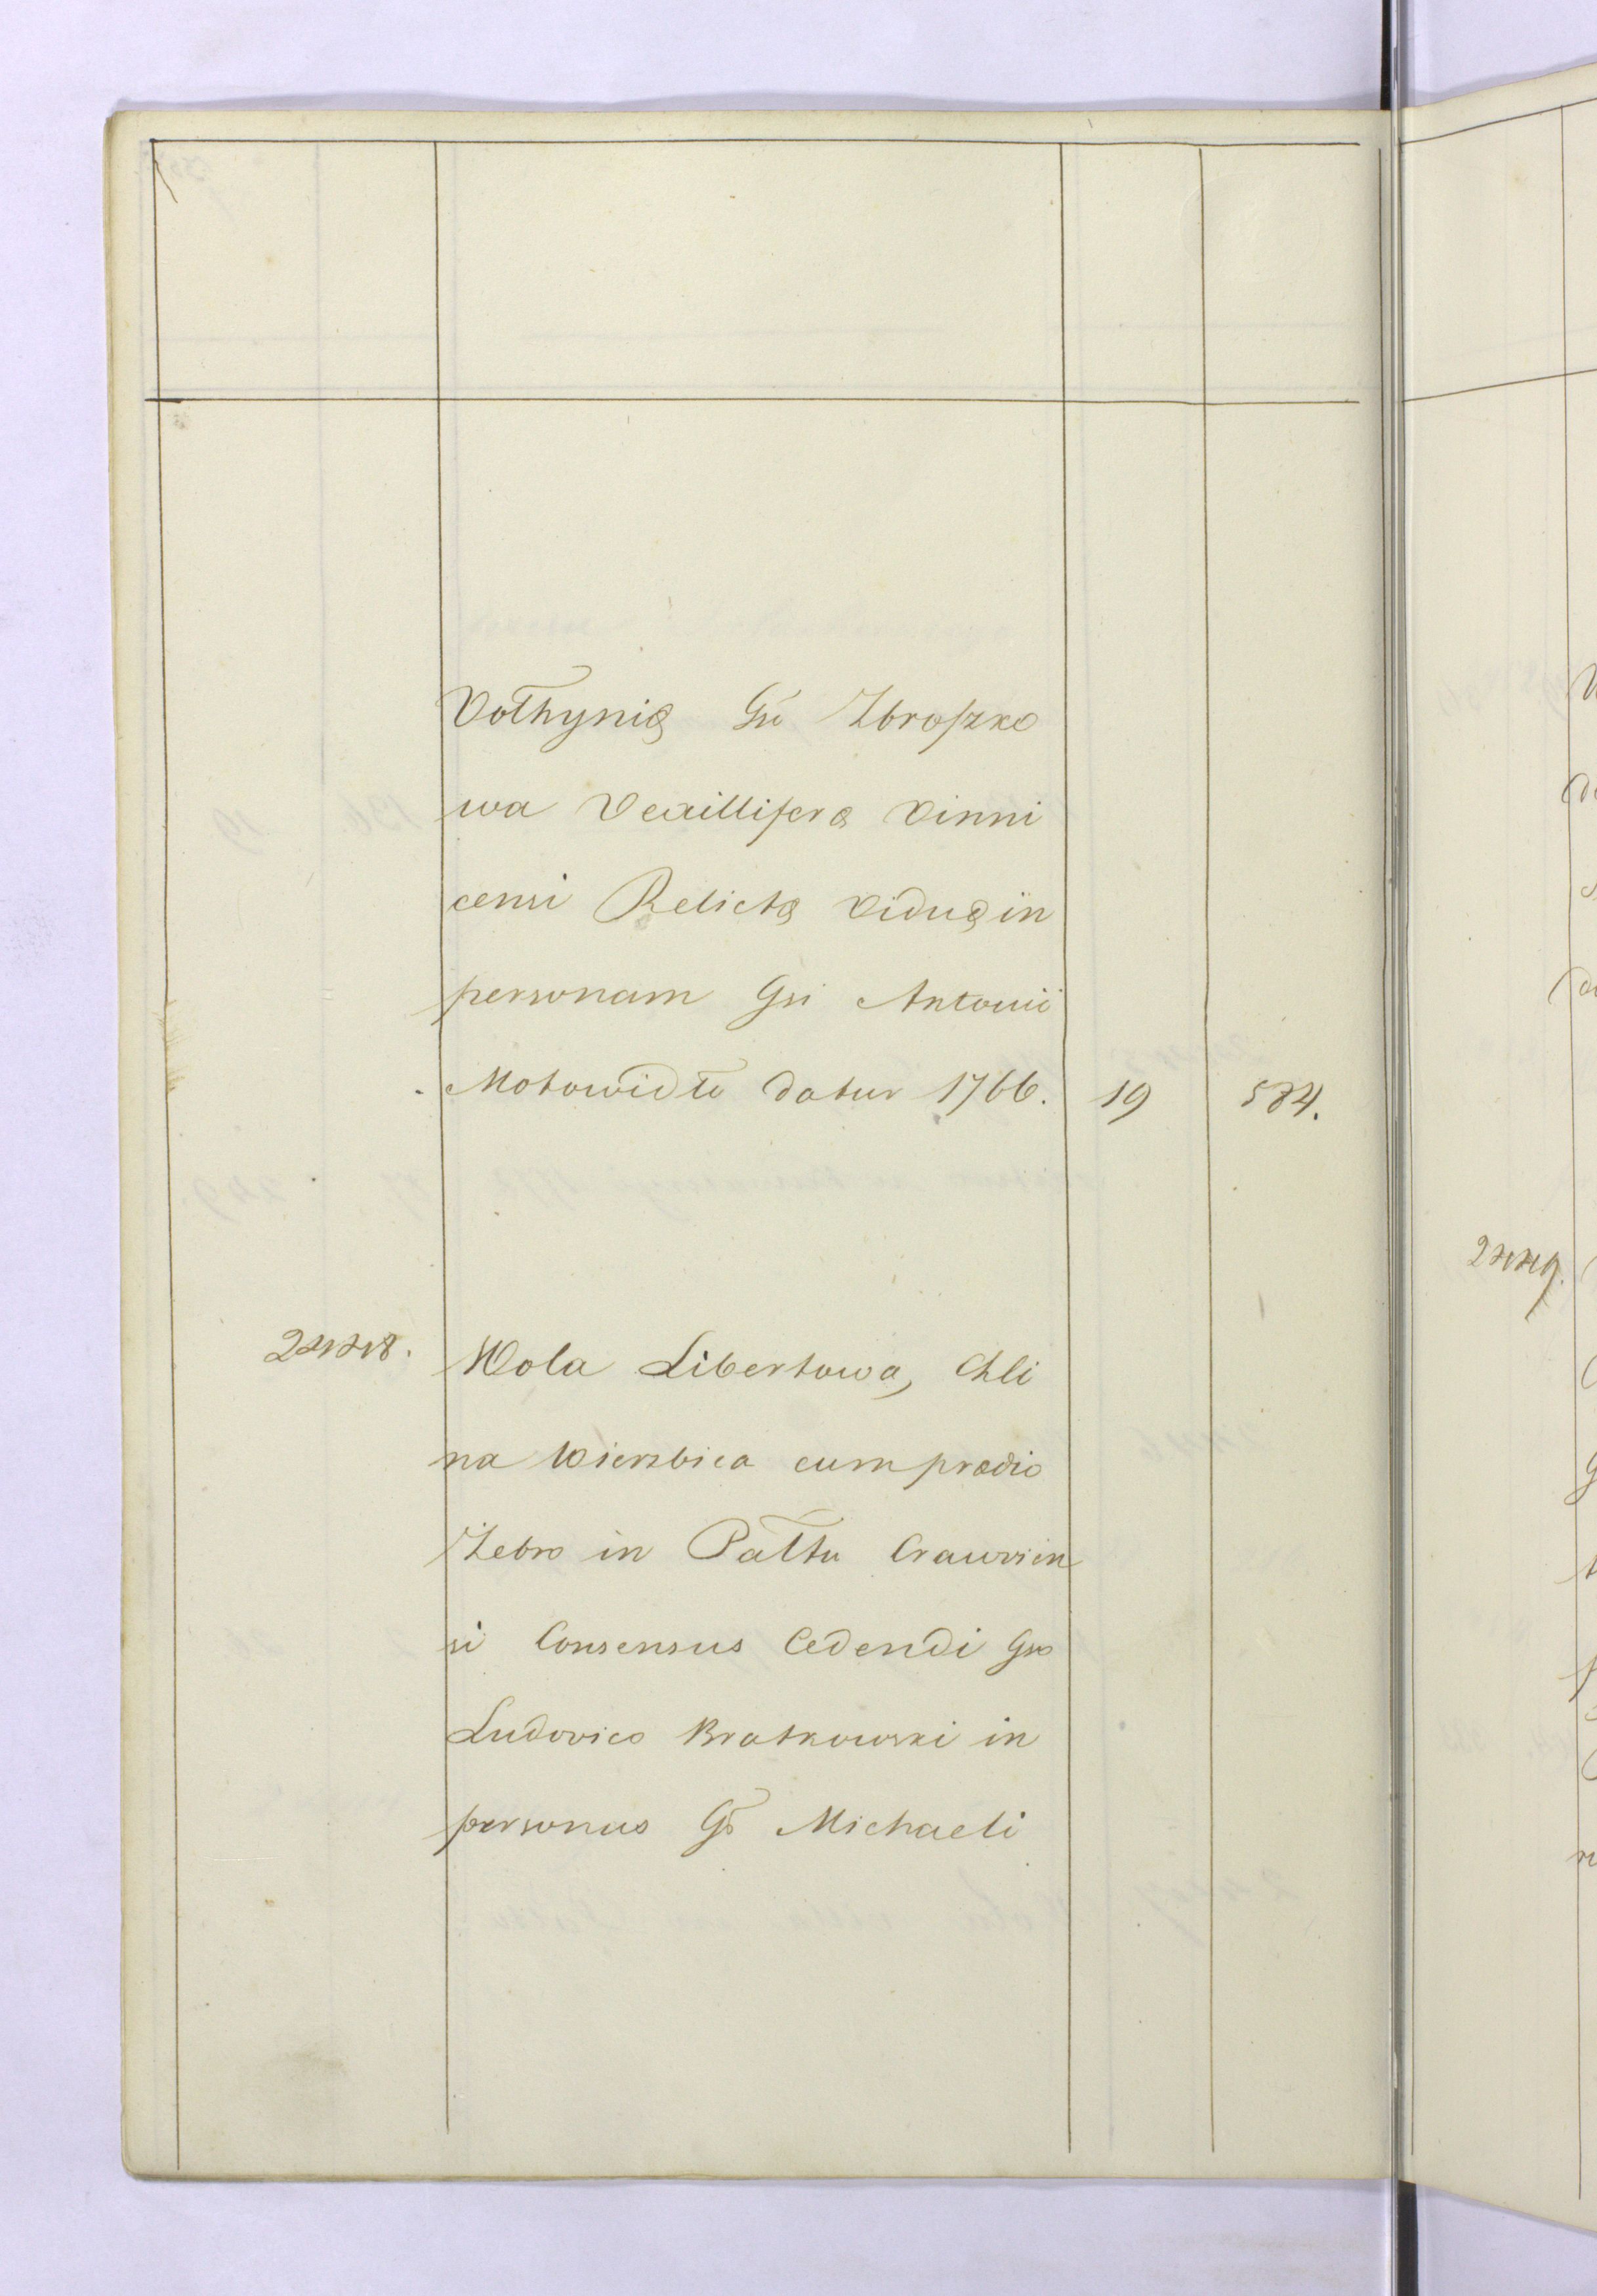 Vołhynię Gu Zbroszko
wa Vexilliferæ Vinni
censi Relictæ Viduæ in
personam Gsi Antonii
Motowidło datur 1766. 19 584.
24448. Wola Libertowa, Chli
na Wierzbica cum prædio
Żebro in Pałłtu Cravvien
si Consensus Cedendi Gso
Ludovico Bratkowski in
personas Gō Michaeli
24449.